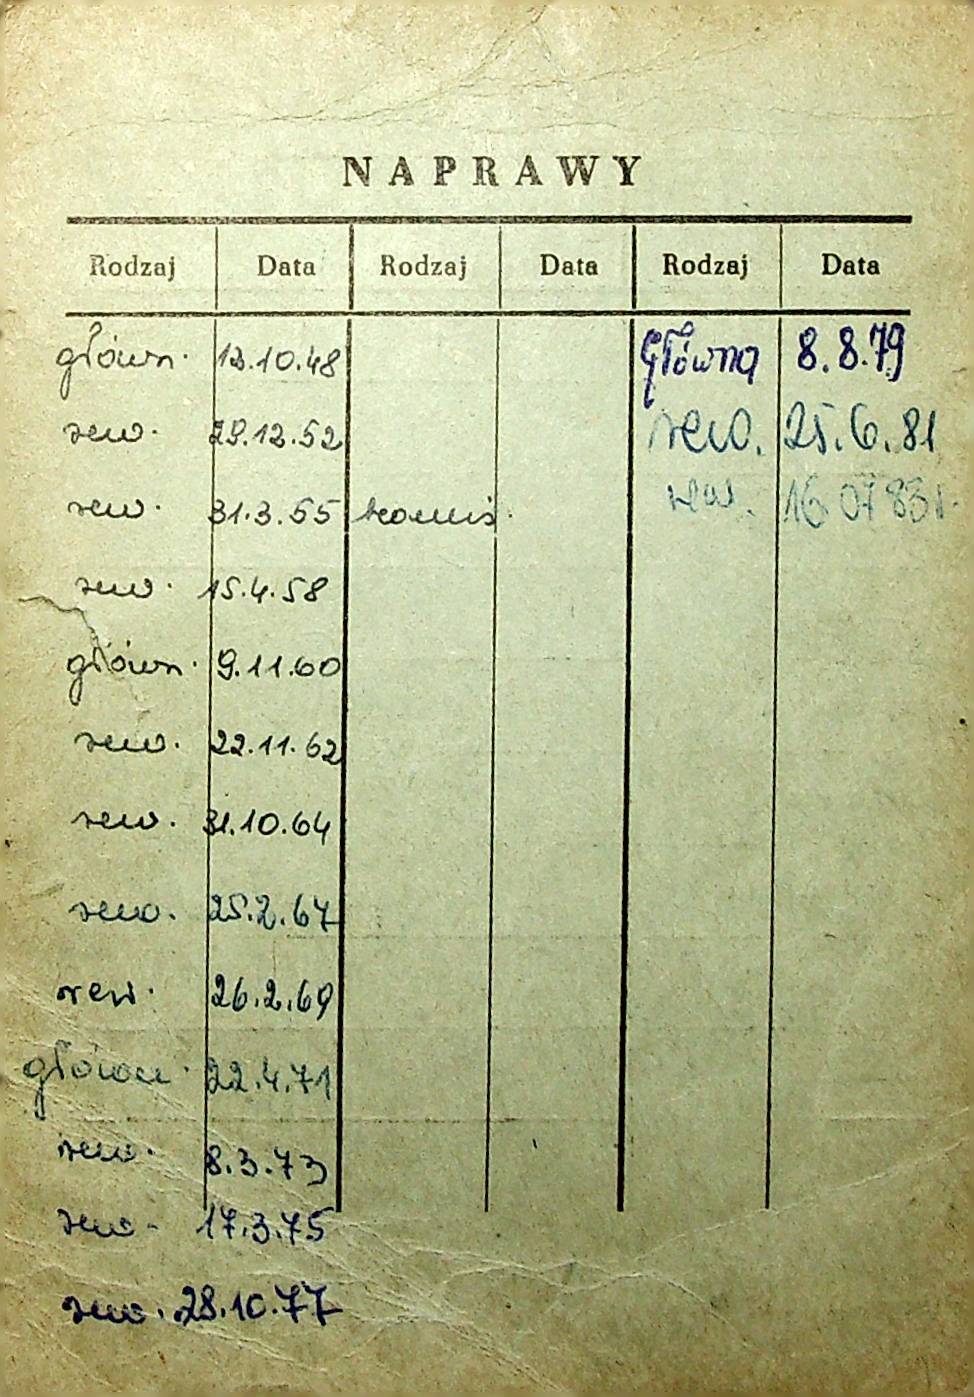 NAPRAWY
Rodzaj Data Rodzaj Data Rodzaj Data
główn. 13.10.48 Główna 8.8.79
rew. 29.12.52 rew. 25.6.81
rew. 31.3.55 rew. 16 07 83r.
rew. 15.4.58
główn. 9.11.60
rew. 22.11.62
rew. 31.10.64
rew. 25.2.67
rew. 26.2.69
główn. 22.4.71
rew. 8.3.73
rew. 17.3.75
rew. 28.10.77